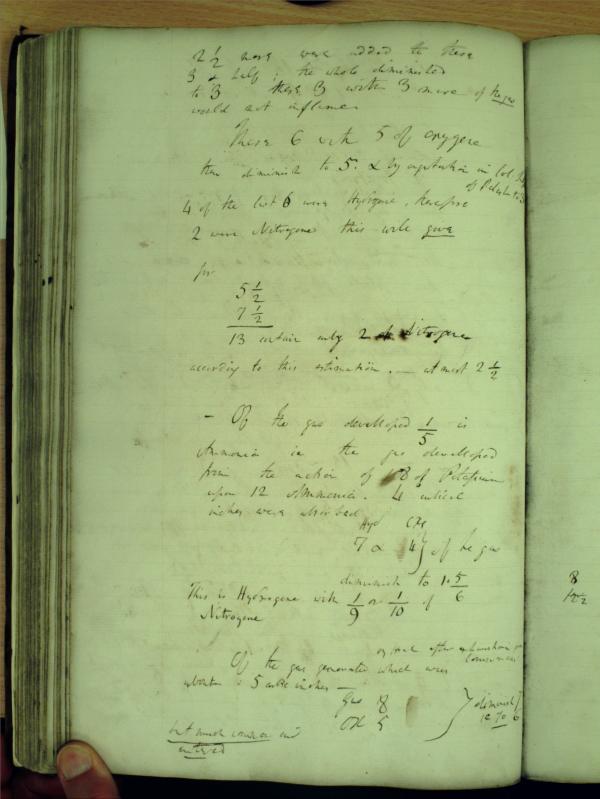 2 1/2 more were added to these
3 & half; the whole diminished
to 3 these 3 with 3 more of the gas
would not inflame
These 6 with 5 of oxygene
then diminish to 5. & by agitation in sol
of
4 of the lost 6 were Hydrogene, therefore
2 were Nitrogene this will give
for
5 1/2
7 1/2
13 contain only 2 of Nitrogene
according to this estimation. — at most 2 1/2
— Of the gas developed 1/5 is
Ammonia in the gas developed
from the action of 8 of Potassium
upon 12 Ammonia. 4 cubical
inches were absorbed
Hyd Oxy
7 & 4 } of the gas
diminish to 1. 5/6
This is Hydrogene with 1/9 or 1/10 of
Nitrogene
Of the gas generated which were
about 5 cubic inches —
Gas 8
OX 5
} diminish
12 to 6
but much common air
entered
8